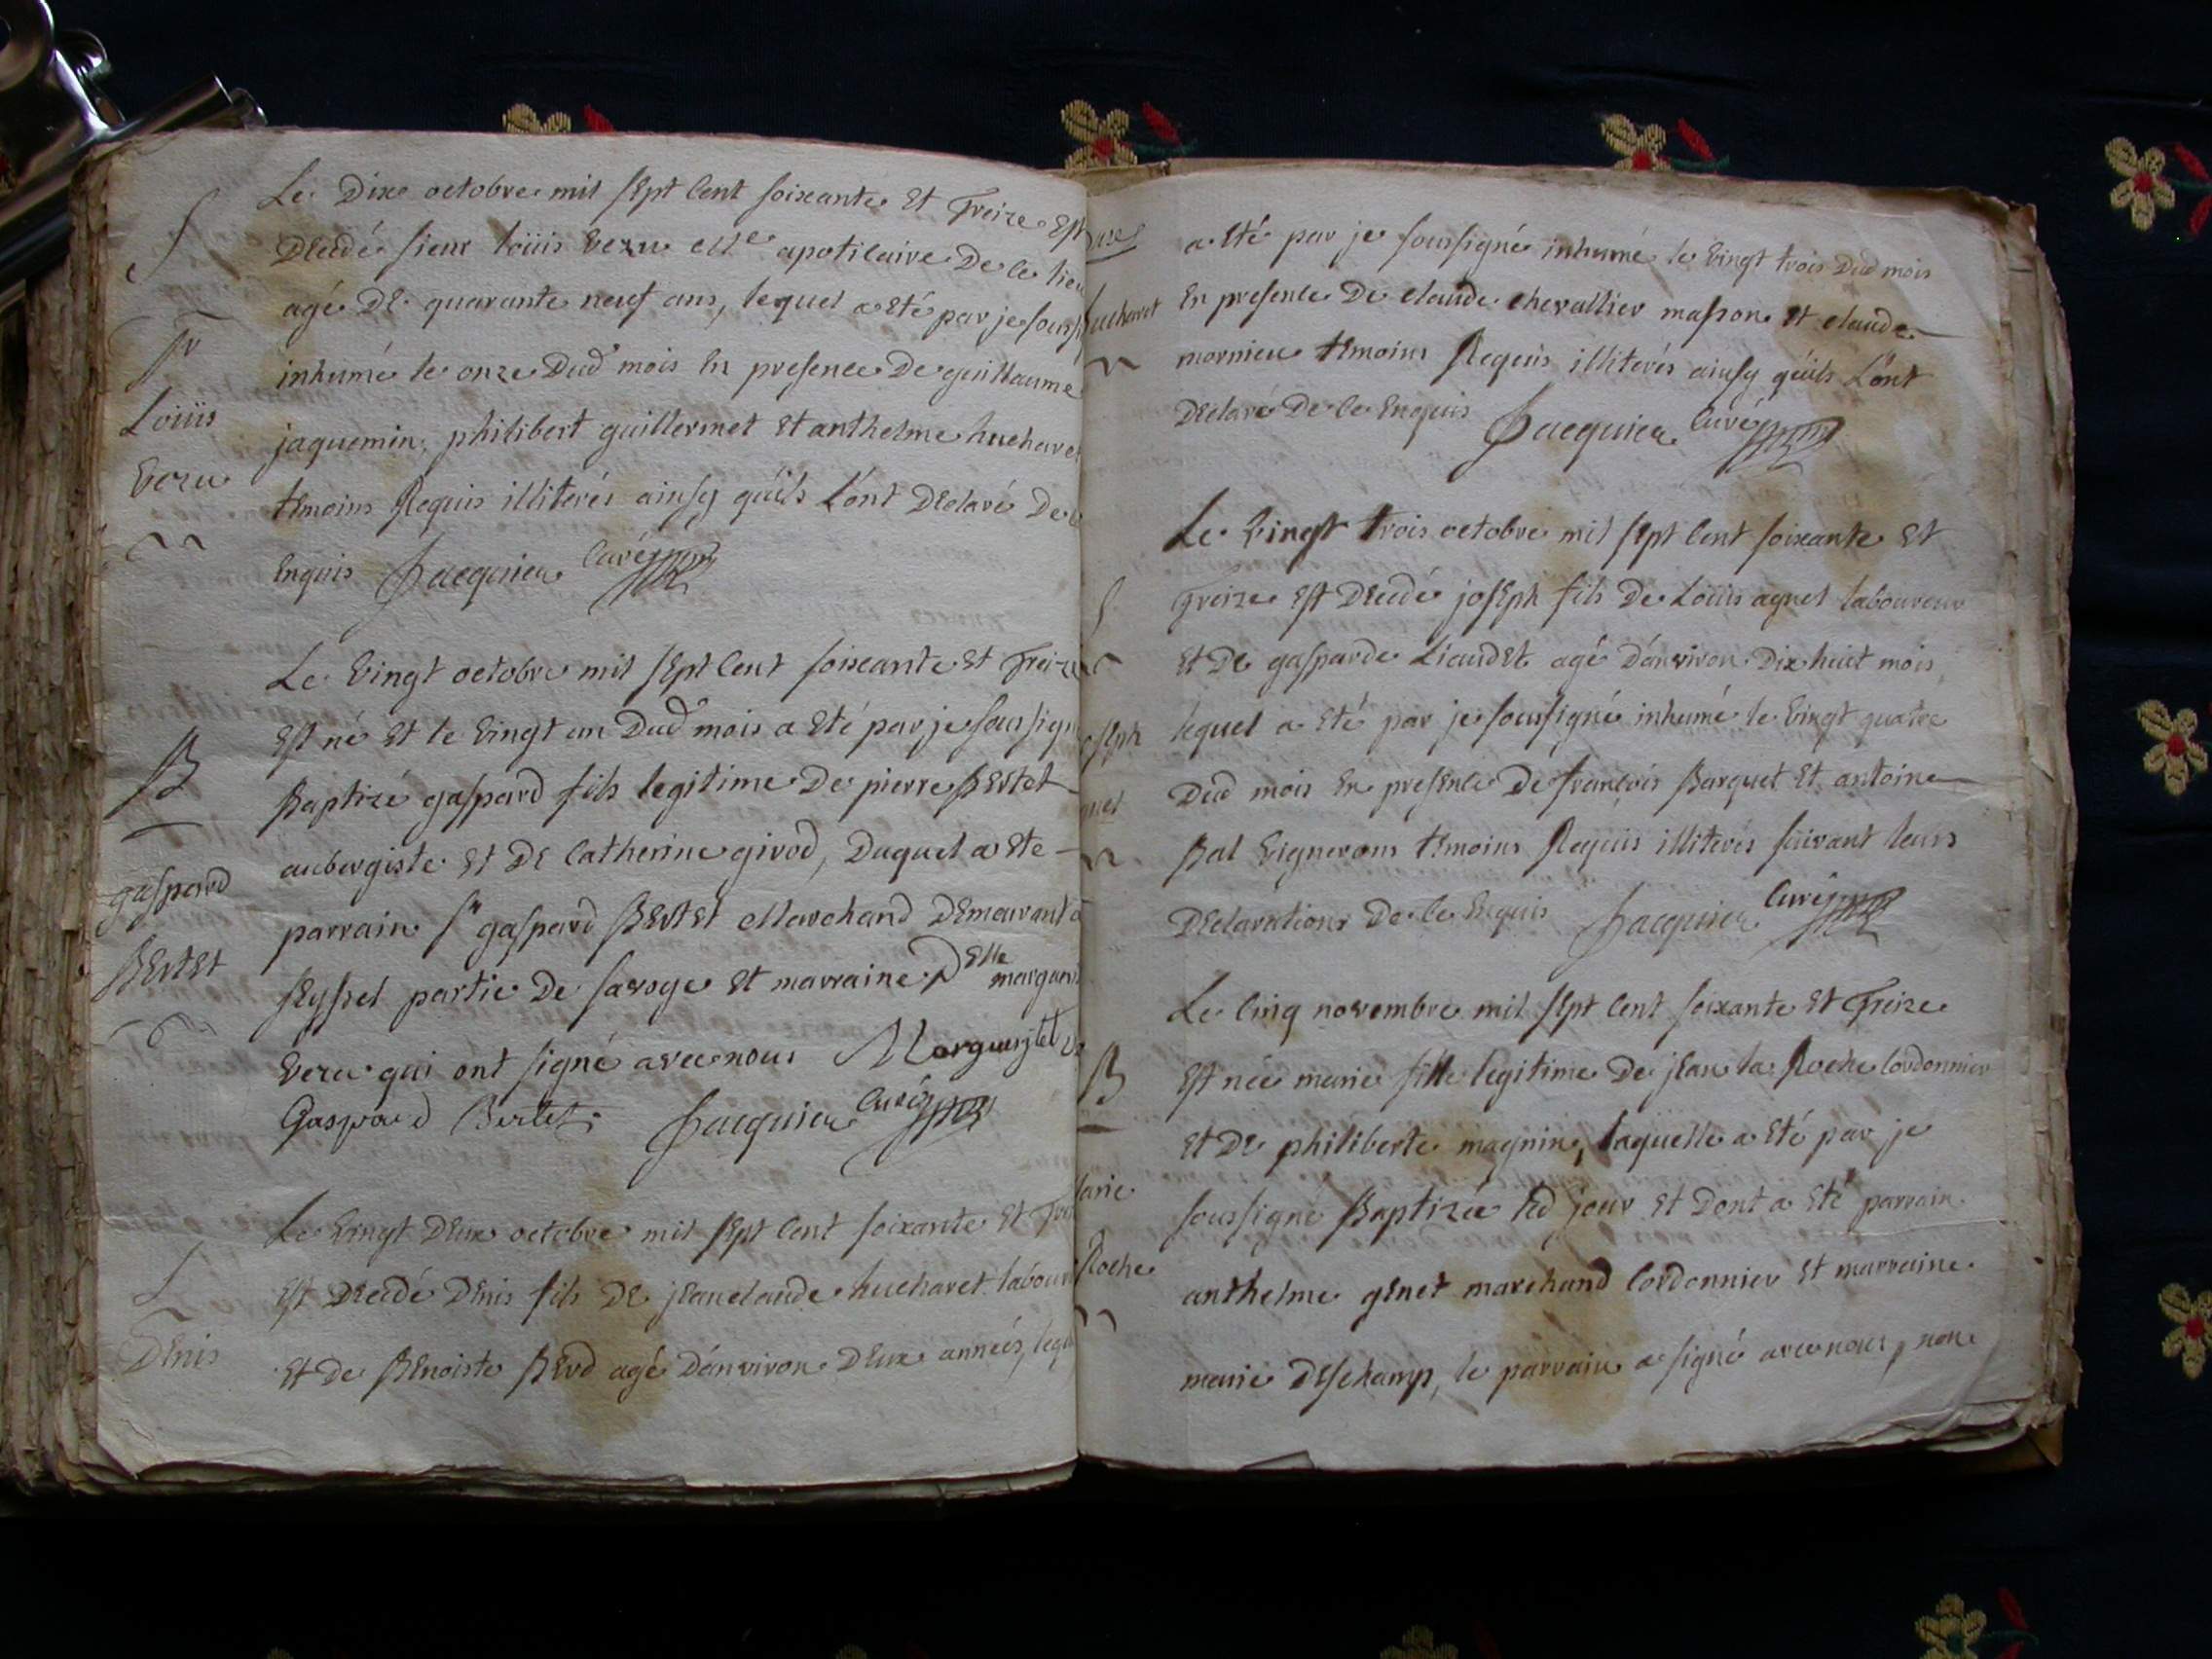 Le Dixe octobre mil sept cent soixante et Treize Est
Décédé sieur Loüis Vezu Me apoticaire De ce lieu
agé De quarante neuf ans, lequel a eté par je souss
inhumé le onze Dud mois en presence De guillaume
jaquemin, philibert guillermet et anthelme hucharet
temoins Requis illiterés ainsy qüils L'ont Declaré De
Enquis Jacquier Curé
Sr
Loüis
Vezu
Le vingt octobre mil sept cent soixante et Treize
Est né et le vingt un Dud mois a eté par je soussign
Baptizé gaspard fils legitime De pierre Bertet
aubergiste et De Catherine girod, Duquel a ete
parrain Sr gaspard Bertet Marchand Demeurant a
Seyssel partie De savoye et marraine Delle margueri
Vezu qui ont signé avec nous Marguerjtet
Gaspard Bertet Jacquier Curé
B
gaspard
Bertet
Le vingt Deux octobre mil sept cent soixante et Trei
Est Décédé Denis fils De jean claude hucharet labour
et De Benoiste Berd agé D'anviron Deux années, leq
Denis
hucharet
a eté par je soussigné inhumé le vingt trois Dud mois
En presence De claude chevallier masson et claude
mornieu temoins Requis illiterés ainsy qüils L'ont
Declaré De ce Enquis Jacquier Curé
Le vingt trois octobre mil sept cent soixante et
Treize est Décédé joseph fils De Loüis agnel laboureur
et De gasparde Liaudet agé D'anviron Dix huit mois,
lequel a eté par je soussigné inhumé le vingt quatre
Dud mois en presence De françois Barquet et antoine
Bal vignerons temoins Requis illiterés suivant leurs
Declarations De ce Enquis Jacquier Curé
oseph
gnel
Le cinq novembre mil sept cent soixante et Treize
Est née marie fille legitime De jean la Roche cordonnier
et De philiberte magnin, laquelle a eté par je
soussigné Baptizée led jour et Dont a eté parrain
anthelme genet marchand Cordonnier et marraine
marie Deschamp, le parrain a signé avec nous, non
B
arie
Roche